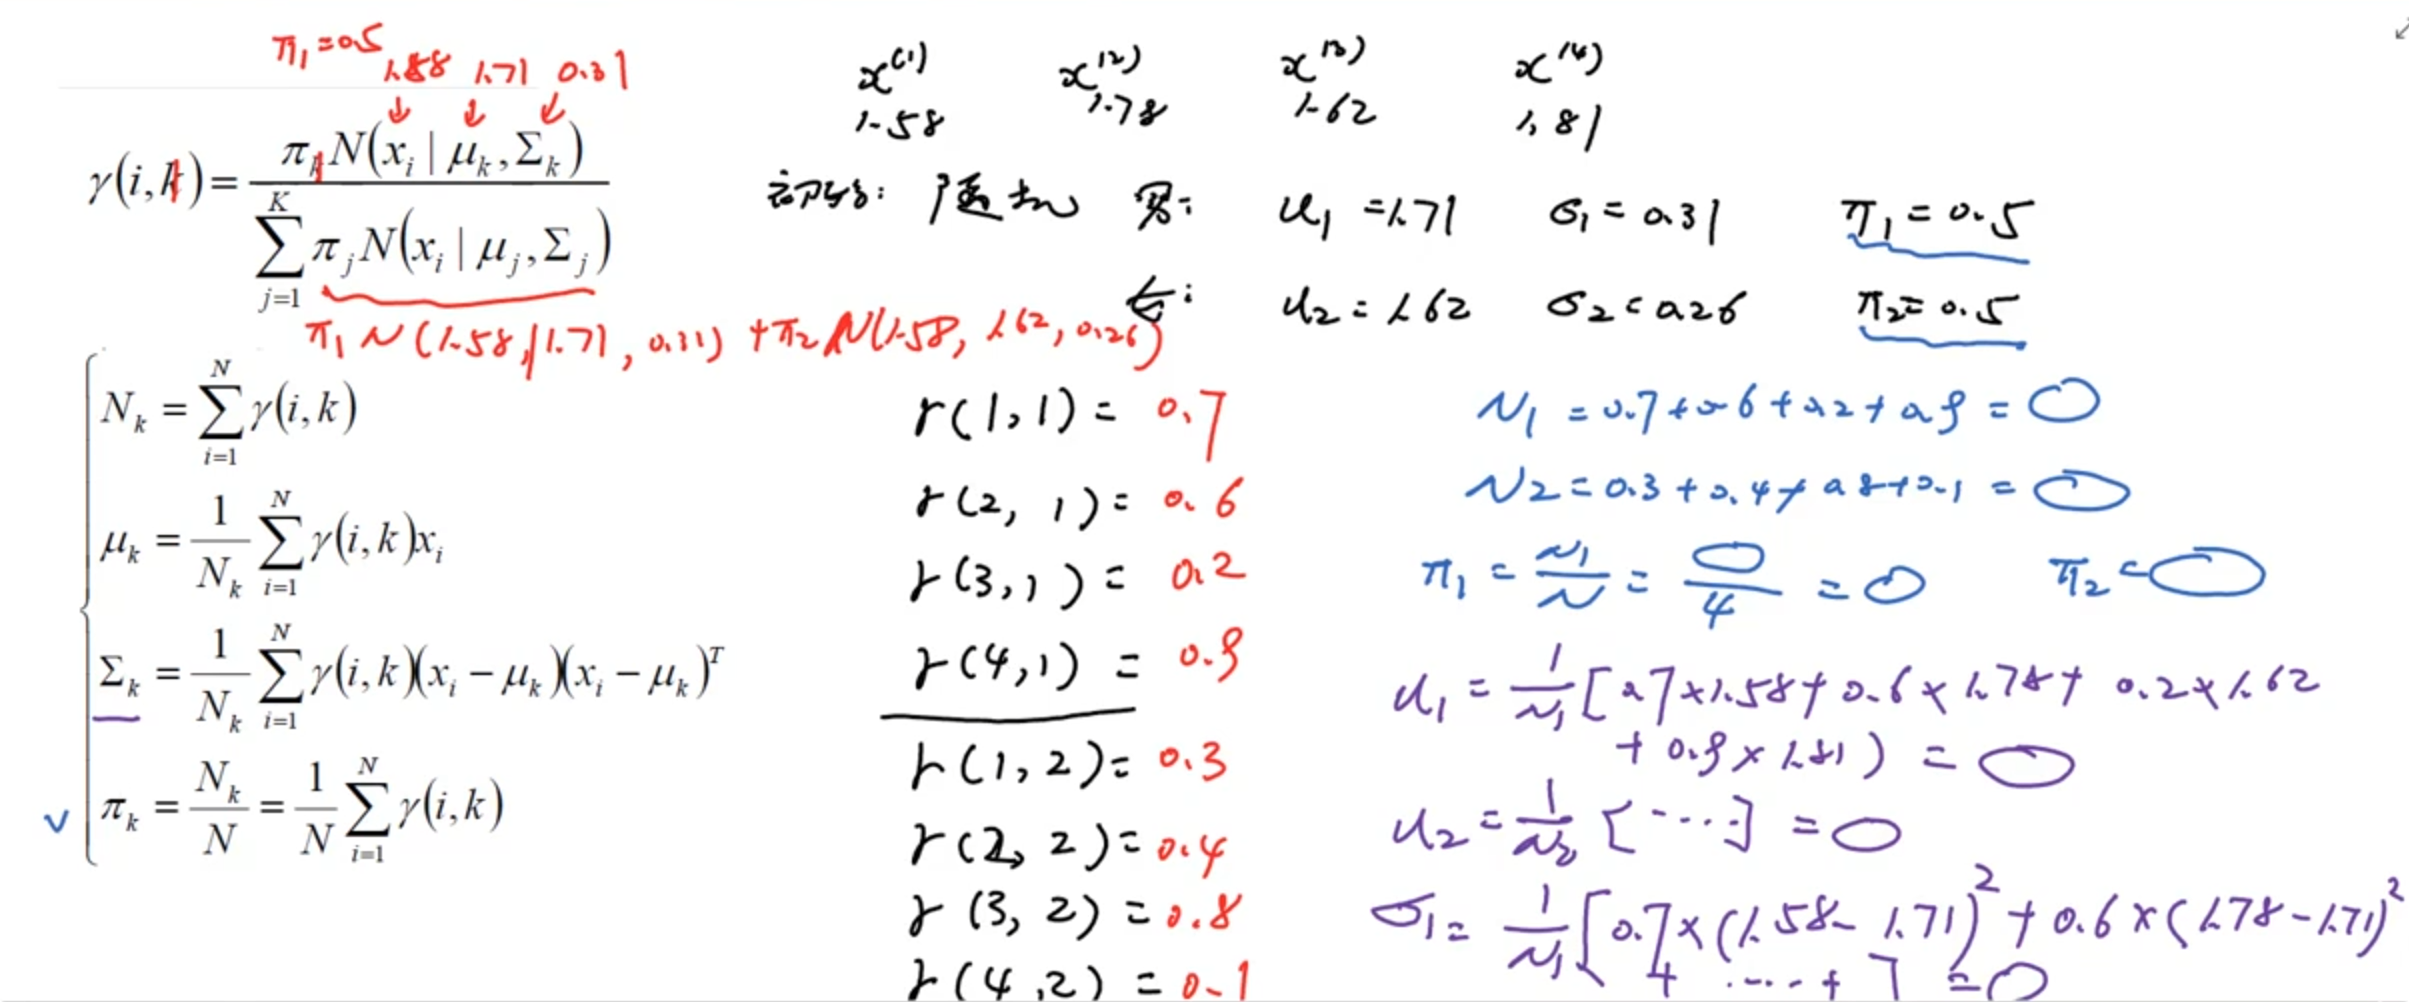 π₁=0.5
1.58 1.71 0.31
γ(i,k) = π_k N(x_i | μ_k, Σ_k) / ∑_{j=1}^{K} π_j N(x_i | μ_j, Σ_j)
π₁ N(1.58, 1.71, 0.31) + π₂ N(1.58, 1.62, 0.26)
N_k = ∑_{i=1}^{N} γ(i,k)
μ_k = 1/N_k ∑_{i=1}^{N} γ(i,k)x_i
Σ_k = 1/N_k ∑_{i=1}^{N} γ(i,k)(x_i − μ_k)(x_i − μ_k)^T
π_k = N_k/N = 1/N ∑_{i=1}^{N} γ(i,k)
x⁽¹⁾ x⁽²⁾ x⁽³⁾ x⁽⁴⁾
1.58 1.78 1.62 1.81
初始: 随机 男: u₁=1.71 σ₁=0.31 π₁=0.5
女: u₂=1.62 σ₂=0.26 π₂=0.5
r(1,1)= 0.7
r(2,1)= 0.6
r(3,1)= 0.2
r(4,1)= 0.9
r(1,2)= 0.3
r(2,2)= 0.4
r(3,2)= 0.8
r(4,2)= 0.1
N₁ = 0.7+0.6+0.2+0.9 = ○
N₂ = 0.3+0.4+0.8+0.1 = ○
π₁ = N₁/N = ○/4 = ○ π₂=○
u₁ = 1/N₁ [0.7×1.58+0.6×1.78+0.2×1.62
+0.9×1.81) = ○
u₂ = 1/N₂ [....] = ○
σ₁= 1/N₁ [0.7×(1.58-1.71)²+0.6×(1.78-1.71)²
+....+ ] =○